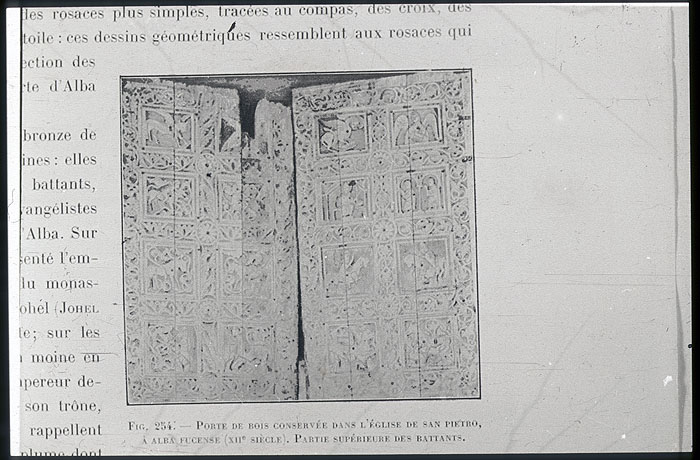 les rosaces plus simples, tracées au compas, des croix, des
toile : ces dessins géométriques ressemblent aux rosaces qui
ection des
rte d'Alba
bronze de
ines : elles
battants,
vangélistes
'Alba. Sur
senté l'em-
lu monas-
ohél (JOHEL
te; sur les
moine en
pereur de-
son trône,
rappellent
plume dont
FIG. 254. — PORTE DE BOIS CONSERVÉE DANS L'ÉGLISE DE SAN PIETRO,
A ALBA FUCENSE (XIIe SIÈCLE). PARTIE SUPÉRIEURE DES BATTANTS.